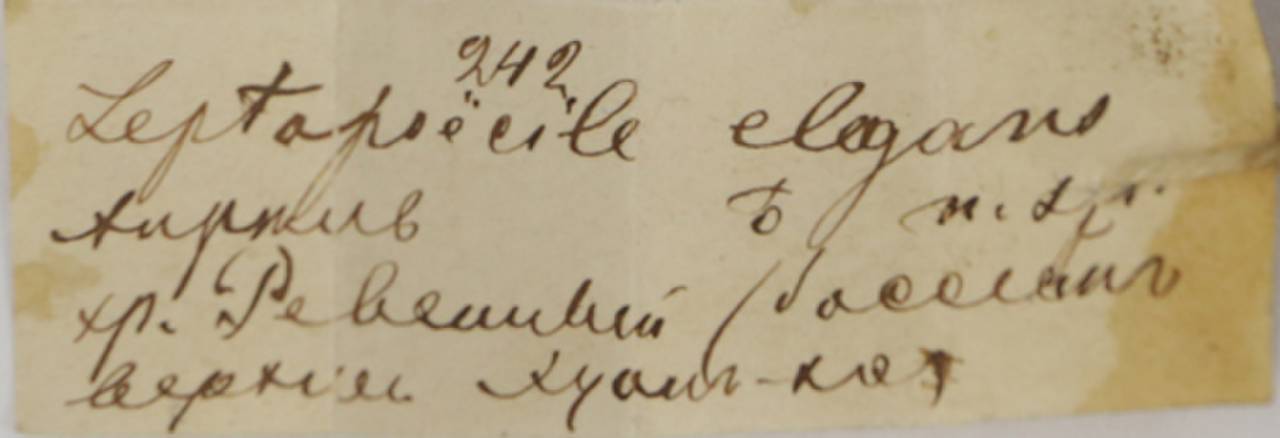 242
Leptopoëcile elegans
Апрель ъ н. ур.
хр. Ревенный (бассейнъ
верхней Хуанг-хэ)